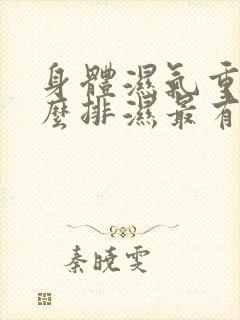 身體濕氣重
麼排濕最有
秦曉雯